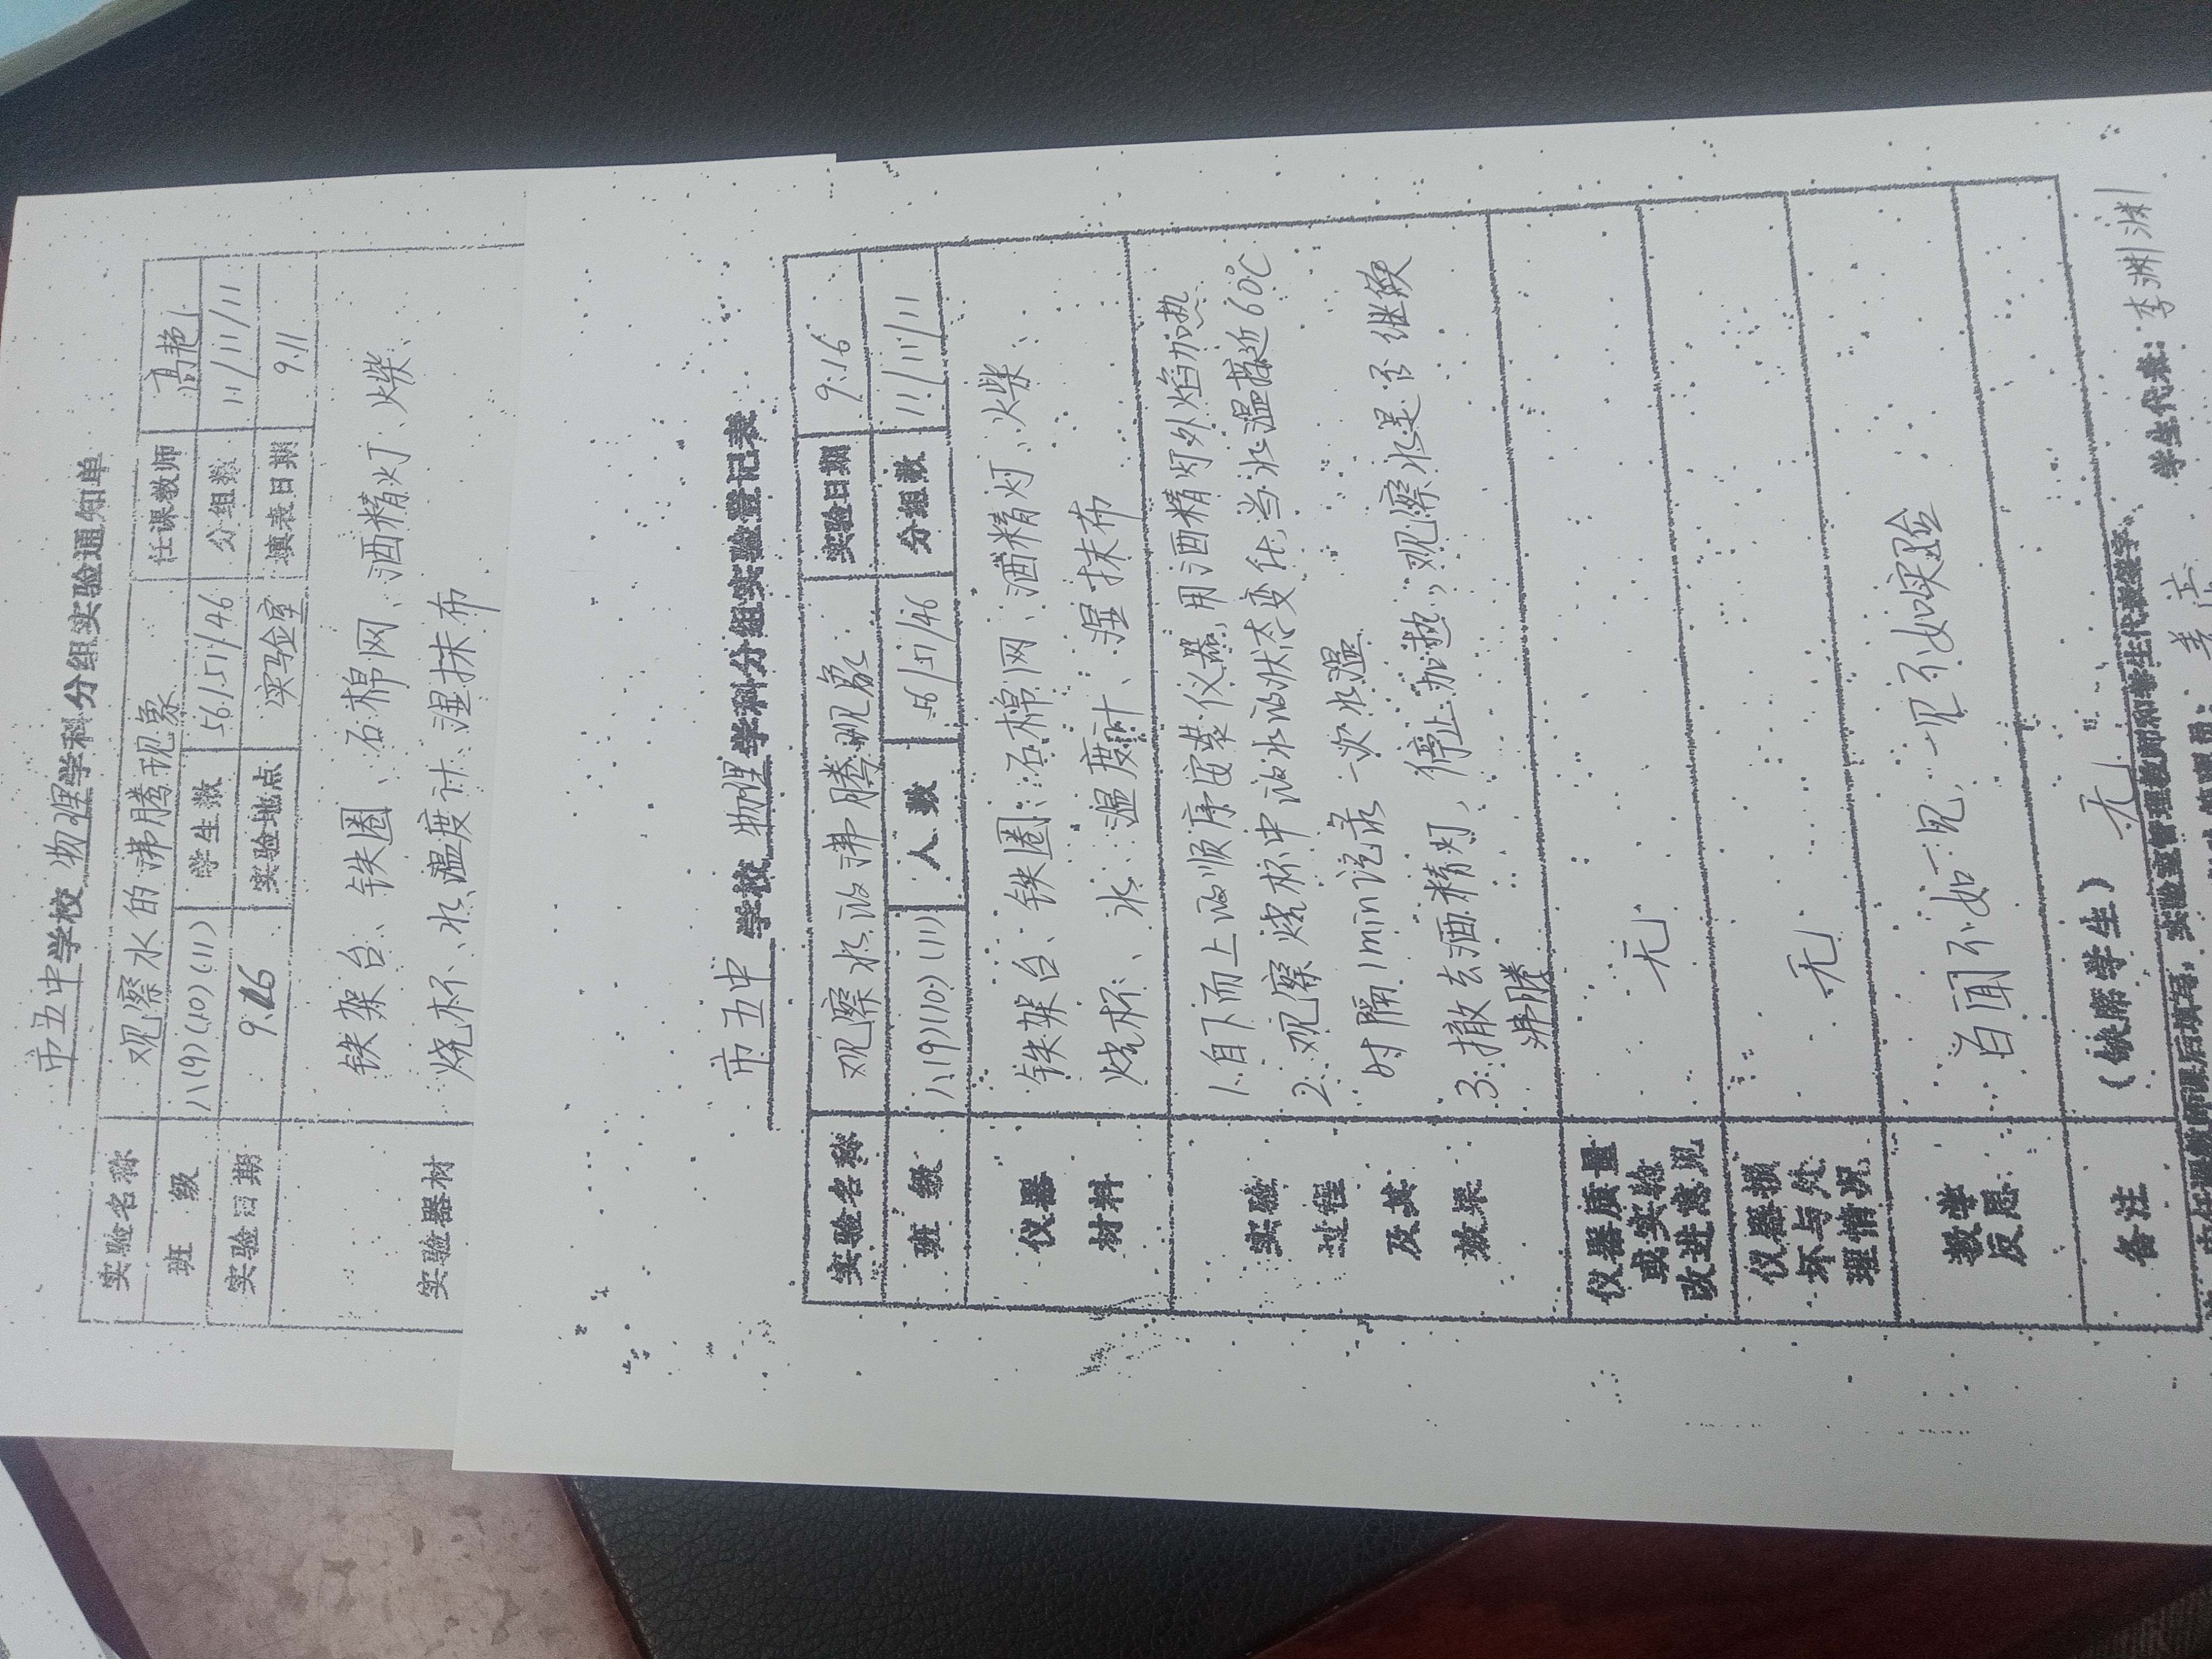 市五中学校 物理学科分组实验通知单
实验名称 观察水的沸腾现象 任课教师 高艳
班 级 八(9)(10)(11) 学生数 56/51/46 分组数 11/11/11
实验日期 9.16 实验地点 实验室 填表日期 9.11
实验器材 铁架台、铁圈、石棉网、酒精灯、火柴、
烧杯、水、温度计、湿抹布
市五中 学校 物理 学科分组实验登记表
实验名称 观察水的沸腾现象 实验日期 9.16
班 级 八(9)(10)(11) 人 数 56/51/46 分组数 11/11/11
仪器 铁架台、铁圈、石棉网、酒精灯、火柴、
材料 烧杯、水、温度计、湿抹布
实验 1.自下而上的顺序安装仪器,用酒精灯外焰加热
过程 2.观察烧杯中的水的状态变化,当水温接近60℃
及其 时隔1min记录一次水温
效果 3.撤去酒精灯,停止加热,观察水是否继续
沸腾
仪器质量
或实验 无
改进意见
仪器损
坏与处 无
理情况
教学 百闻不如一见,一见不如实验
反思
备注 (缺席学生) 无
由任课教师课后填写,实验室管理教师和学生代表签字。 学生代表:李渊渊